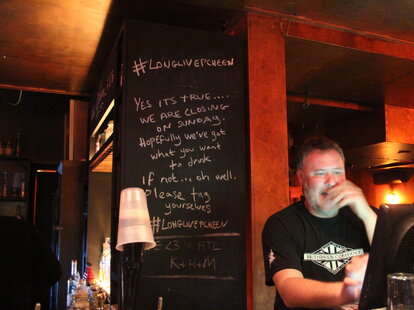 #LONGLIVEPCHEEN
YES ITS TRUE....
WE ARE CLOSING
ON SUNDAY.
Hopefully we've got
what you want
to drink
If not... oh, well.
Please tag
yourselves
#LONGLIVEPCHEEN
K+H+M